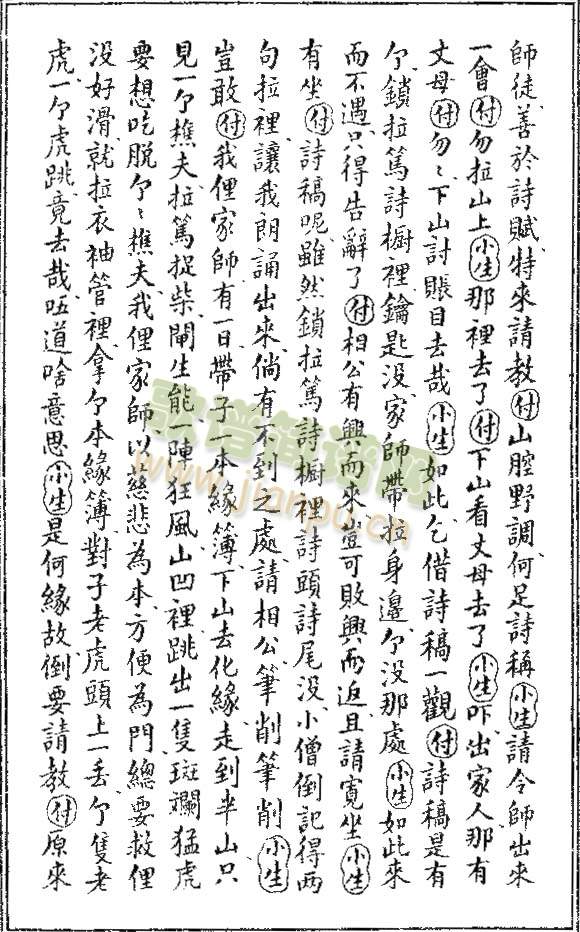 師徒善於詩賦特來請教付山腔野調何足詩稱小生請令師出來
一會付勿拉山上小生那裡去了付下山看丈母去了小生吓出家人那有
丈母付勿〻下山討賬目去哉小生如此乞借詩稿一觀付詩稿是有
个鎖拉篤詩橱裡鑰匙没家師帶拉身邊个没那處小生如此來
而不遇只得告辭了付相公有興而來豈可敗興而返且請寬坐小生
有坐付詩稿呢雖然鎖拉篤詩橱裡詩頭詩尾没小僧倒記得兩
句拉裡讓我朗誦出來倘有不到之處請相公筆削筆削小生
豈敢付我俚家師有一日帶子一本緣簿下山去化緣走到半山只
見一个樵夫拉篤捉柴閘生能一陣狂風山凹裡跳出一隻斑斕猛虎
要想吃脱个〻樵夫我俚家師以慈悲為本方便為門總要救俚
没好滑就拉衣袖管裡拿个本緣簿對子老虎頭上一丢个隻老
虎一个虎跳竟去哉唔道啥意思小生是何緣故倒要請教付原來
歌譜簡譜網
www.jianpu.cn